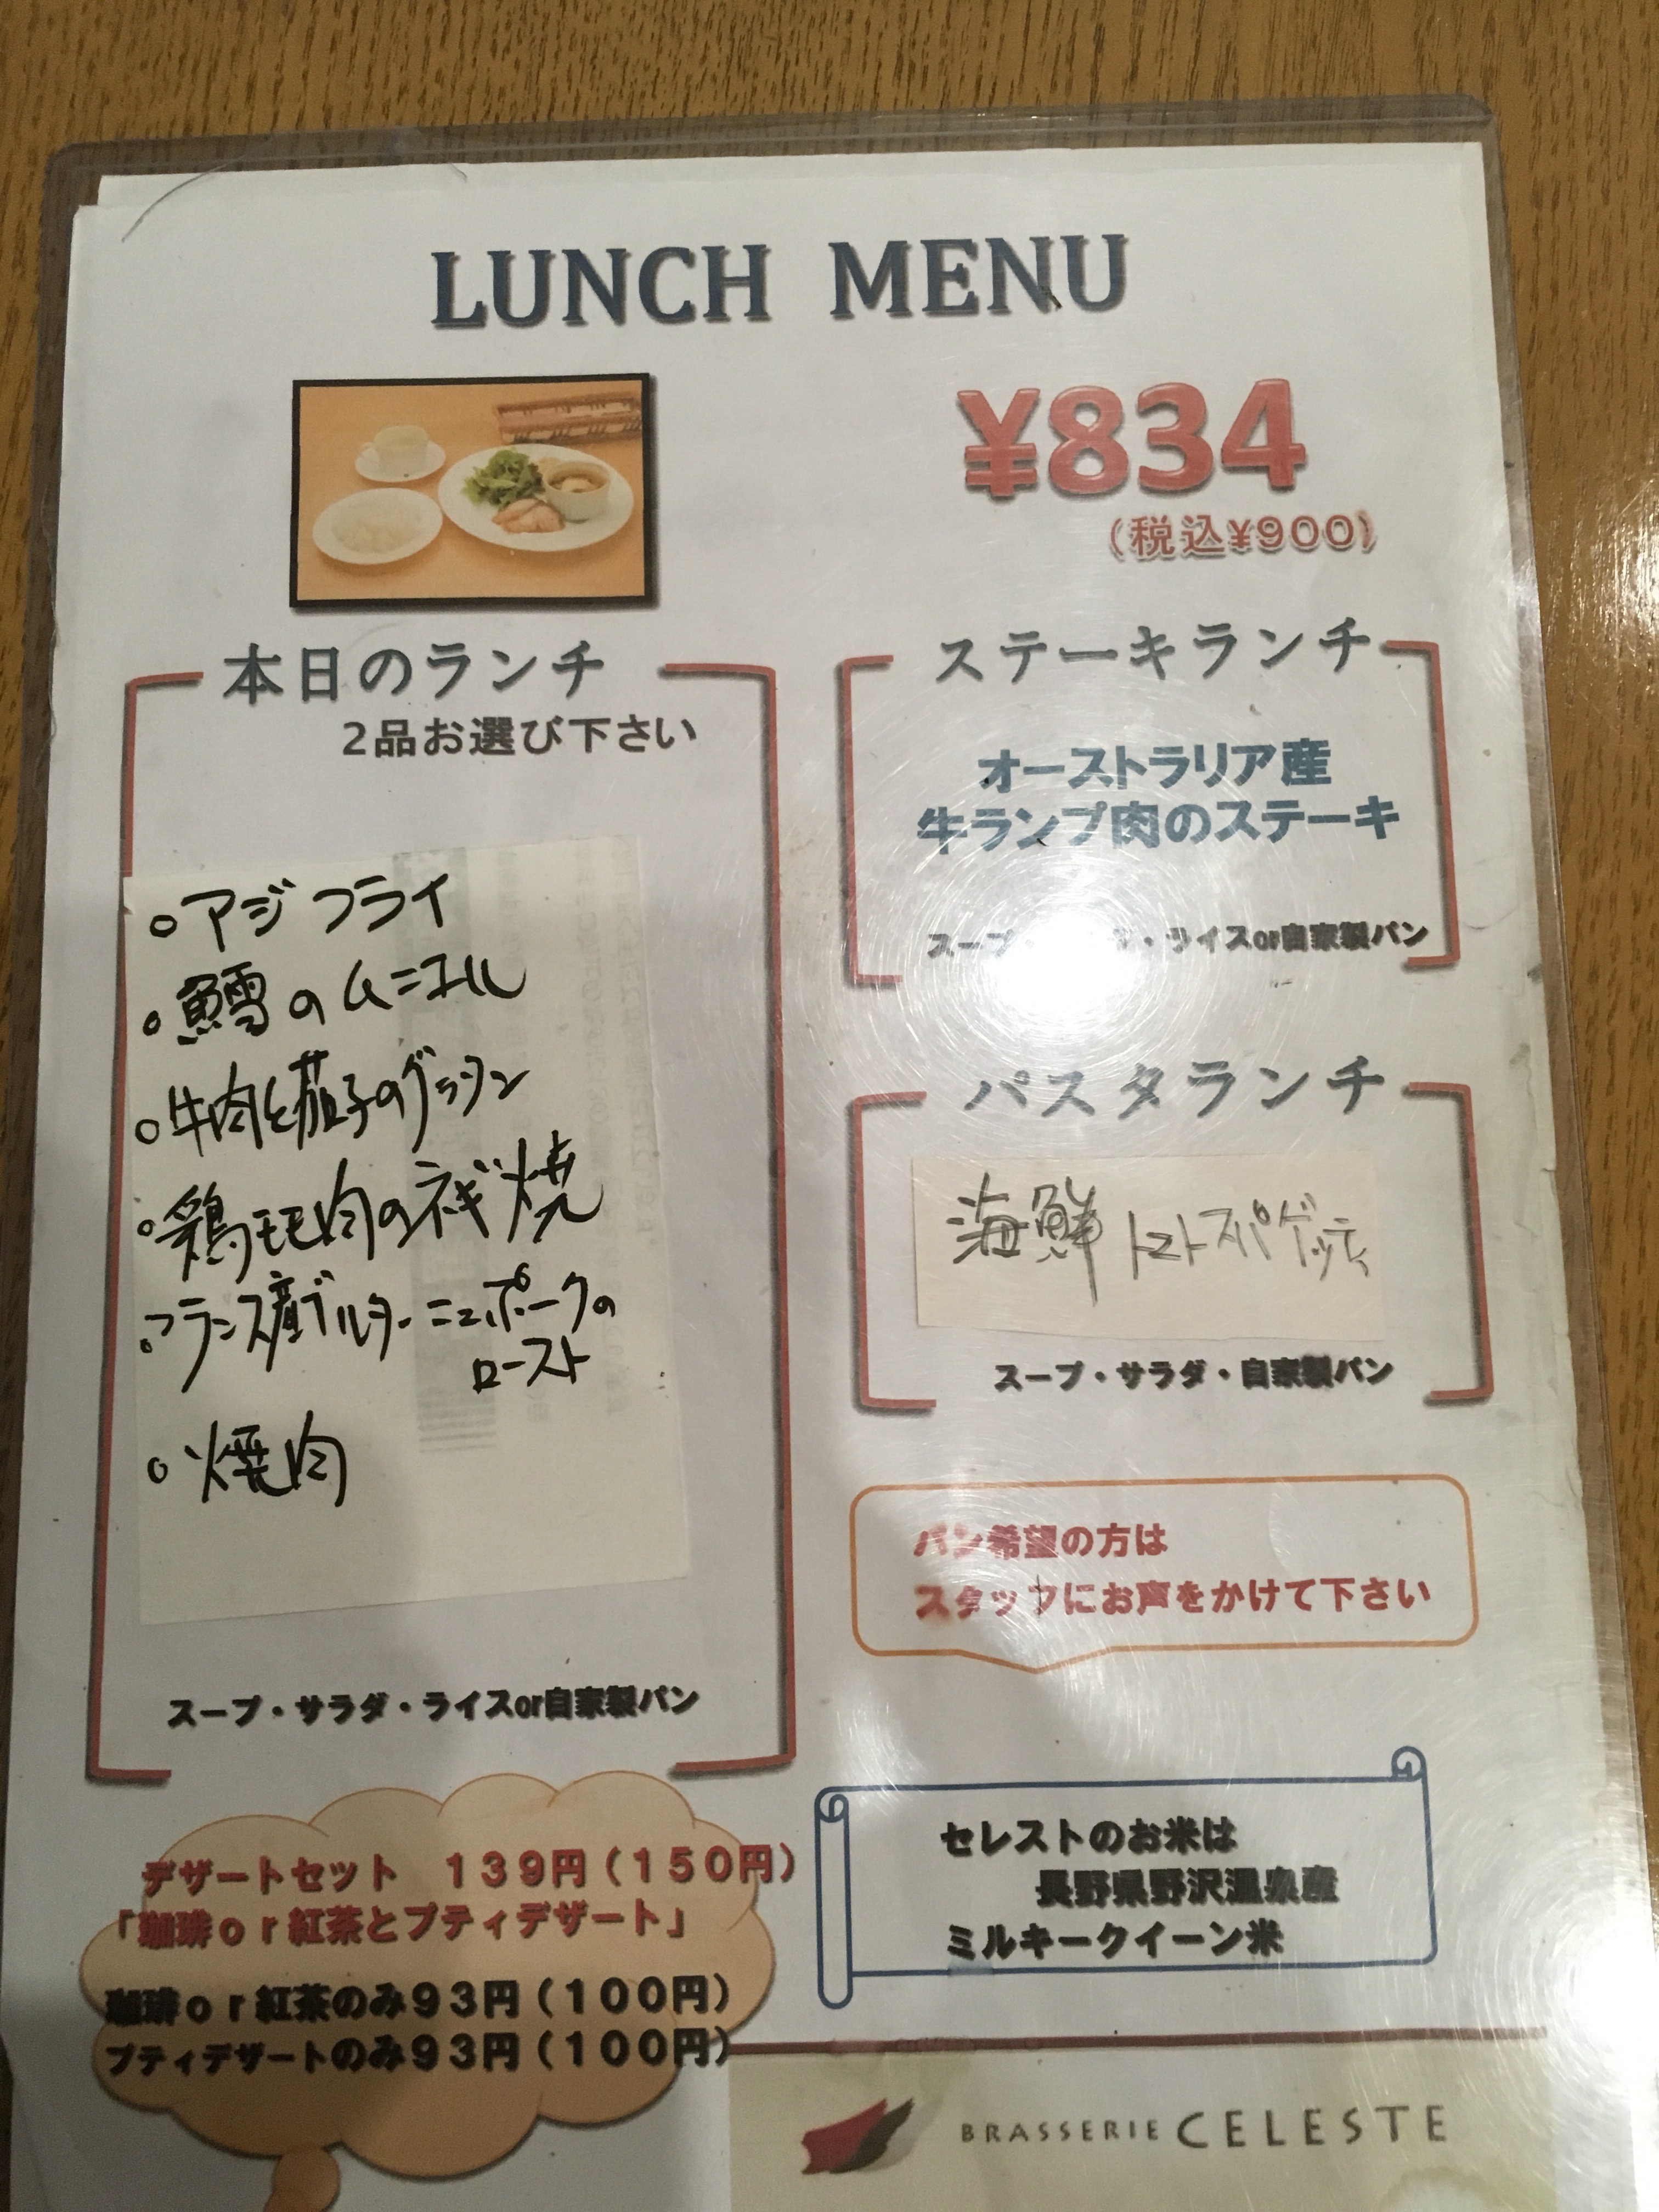 LUNCH MENU
¥834
(税込¥900)
本日のランチ
2品お選び下さい
○アジフライ
○鱈のムニエル
○牛肉と茄子のグラタン
○鶏モモ肉のネギ焼
○フランス産ブルターニュポークの
ロースト
○焼肉
スープ・サラダ・ライスor自家製パン
ステーキランチ
オーストラリア産
牛ランプ肉のステーキ
スープ・ ・ライスor自家製パン
パスタランチ
海鮮トマトスパゲッティ
スープ・サラダ・自家製パン
パン希望の方は
スタッフにお声をかけて下さい
デザートセット 139円(150円)
「珈琲or紅茶とプティデザート」
珈琲or紅茶のみ93円(100円)
プティデザートのみ93円(100円)
セレストのお米は
長野県野沢温泉産
ミルキークイーン米
BRASSERIE CELESTE